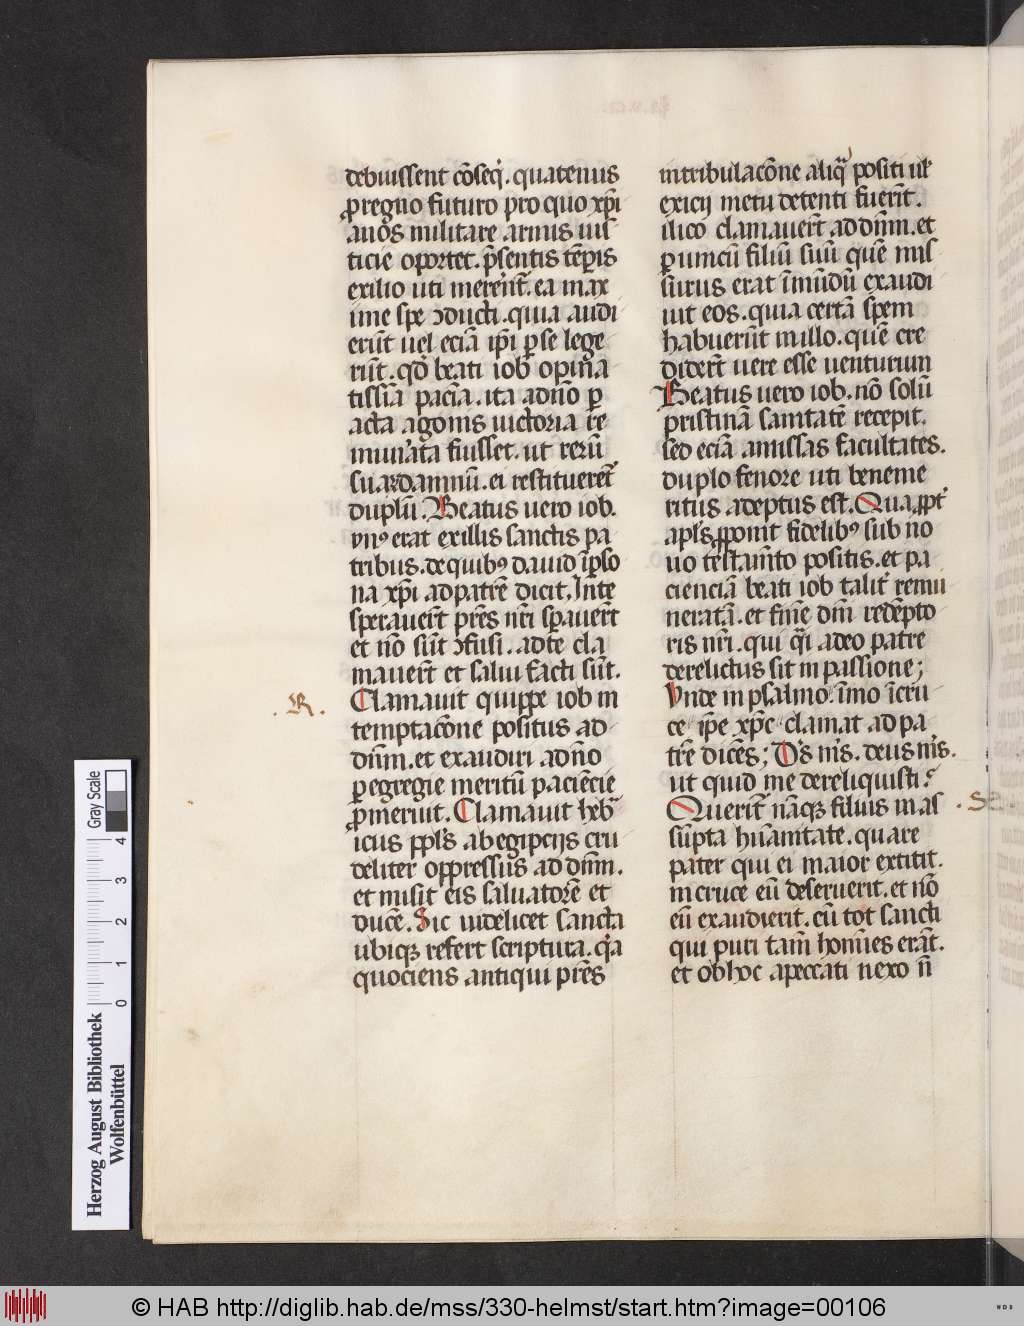 debuissent cōseq̇. quatenus
ꝓ regno futuro pro quo xp̄i
anos militare armis iusticie
ticie oportet. p̄sentis tēpis
exilio uti merēnt̄. ea max
ime spe ɔducti. quia audi
erūt uel eciā ip̄i ꝑ se lege
rūt. qđ beati iob opin̄a
tissīa paciā. ita ad n̄o ꝑ
acta agonis uictoria re
munˀata fuisset. ut rerū
suaꝝ damnū. ei restituerēt
duplū. Beatus uero iob.
vnꝰ erat ex illis sanctis pa
tribus. de quibꝰ dauid ī ꝑso
na xp̄i ad patrē dicit. In te
sperauer̄t pr̄es nr̄i sꝑauer̄t
et nō sūt ɔfusi. ad te cla
mauer̄t et salui facti sūt.
Clamauit quippe iob in
temptacōne positus ad
dn̄m. et exaudiri ad n̄o
ꝑ egregie meritū paciēcie
ꝓmeruit. Clamauit heb̄
icus ppl̄s ab egipcijs cru
deliter oppressus ad dn̄m.
et misit eis saluatorē et
ducē. Sic uidelicet sancta
ubiqꝫ refert scriptura. qˀa
quociens antiqui pr̄es
.R.
in tribulacōne aliq̄ positi ul̓
exicij metu detenti fuer̄t.
ilico clamauer̄t ad dn̄m. et
ꝑ unicū filiū suū quē mis
surus erat ī mūdū exaudi
uit eos. quia certā spem
habuerūt in illo. quē cre
dider̄t uere esse uenturum
Beatus uero iob. nō solū
pristinā sanitatē recepit.
sed eciā amissas facultates.
duplo fenore uti beneme
ritus adeptus est. Quaꝓpt̓
apl̄s ꝓponit fidelibꝰ sub no
uo testam̄to positis. et pa
cienciā beati iob talit̓ remu
neratā. et finē dn̄i redēpto
ris nr̄i. qui q̄i a deo patre
derelictus sit in passione;
Vnde in psalmo. īmo ī cru
ce ip̄e xp̄c clamat ad pa
trē dicēs; Dˀs mˀs. deus mˀs.
ut quid me dereliquisti?
Querit̄ nāqꝫ filius in as
sūpta hūanitate. quare
pater qui ei maior extitit.
in cruce eū deseruerit. et nō
eū exaudierit. cū tot sancti
qui puri tam̄ homīes erāt.
et ob hoc a peccati nexo n̄
Herzog August Bibliothek
Wolfenbüttel
0 1 2 3 4
Gray Scale
© HAB http://diglib.hab.de/mss/330-helmst/start.htm?image=00106